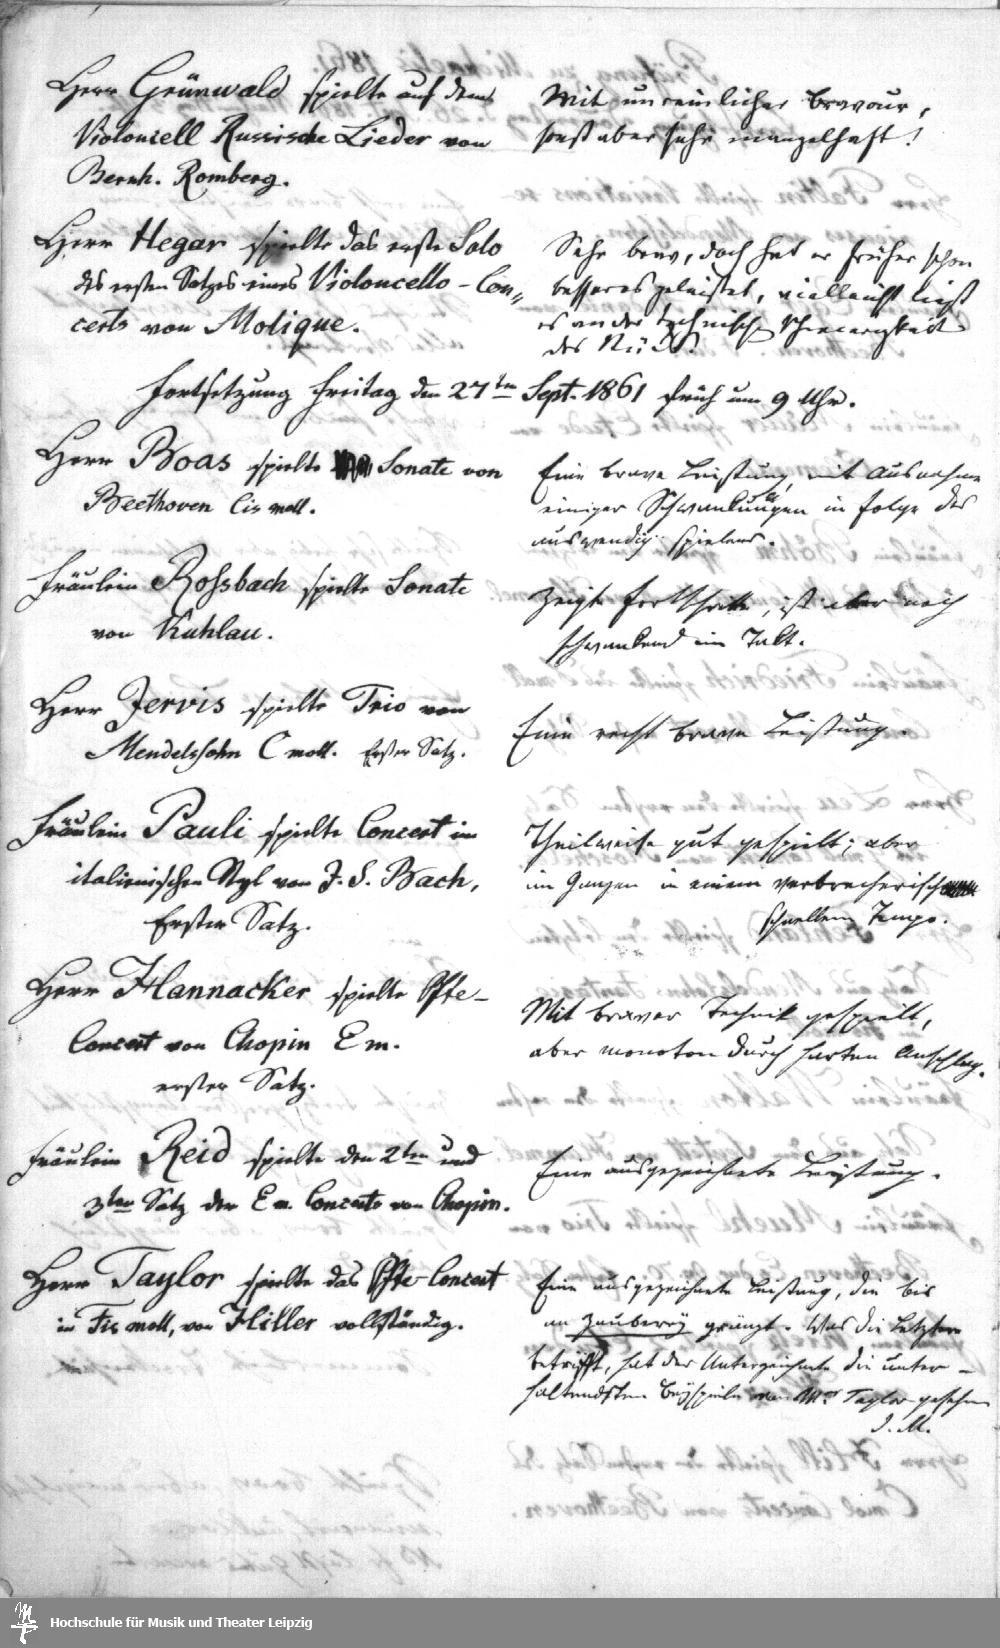 Herr Grünwald spielte auf dem
Violoncell Russische Lieder von
Bernh. Romberg.
Mit unreinlicher bravour,
sonst aber sehr mangelhaft!
Herr Hegar spielte das erste Solo
des ersten Satzes eines Violoncello-Con-
certs von Molique.
Sehr brav, doch hat er früher schon
besseres geleistet, vielleicht liegt
es an der technischen Schwierigkeit
des Stücks.
Fortsetzung Freitag den 27ten Sept. 1861 früh um 9 Uhr.
Herr Boas spielte Sonate von
Beethoven Cis moll.
Eine brave Leistung, mit Ausnahme
einiger Schwankungen in folge des
auswendig spielens.
Fräulein Rossbach spielte Sonate
von Kuhlau.
Zeigte Fortschritte, ist aber noch
schwankend im Takt.
Herr Jervis spielte Trio von
Mendelssohn C moll. Erster Satz.
Eine recht brave Leistung.
Fräulein Pauli spielte Concert im
italienischen Styl von J. S. Bach,
Erster Satz.
Theilweise gut gespielt; aber
im Ganzen in einem verbrecherisch
schnellem Tempo.
Herr Hannacker spielte Pfte-
Concert von Chopin E m.
erster Satz.
Mit braver Technik gespielt,
aber monoton durch harten Anschlag.
Fräulein Reid spielte den 2ten und
3ten Satz des E m. Concerts von Chopin.
Eine ausgezeichnete Leistung.
Herr Taylor spielte das Pfte Concert
in Fis moll, von Hiller vollständig.
Eine ausgezeichnete Leistung, die bis
an Zauberey gränzt. Was die Letztere
betrifft, hat der Unterzeichnete die unter-
haltendsten Beyspiele von Mr Taylor gesehen
I. M.
Hochschule für Musik und Theater Leipzig